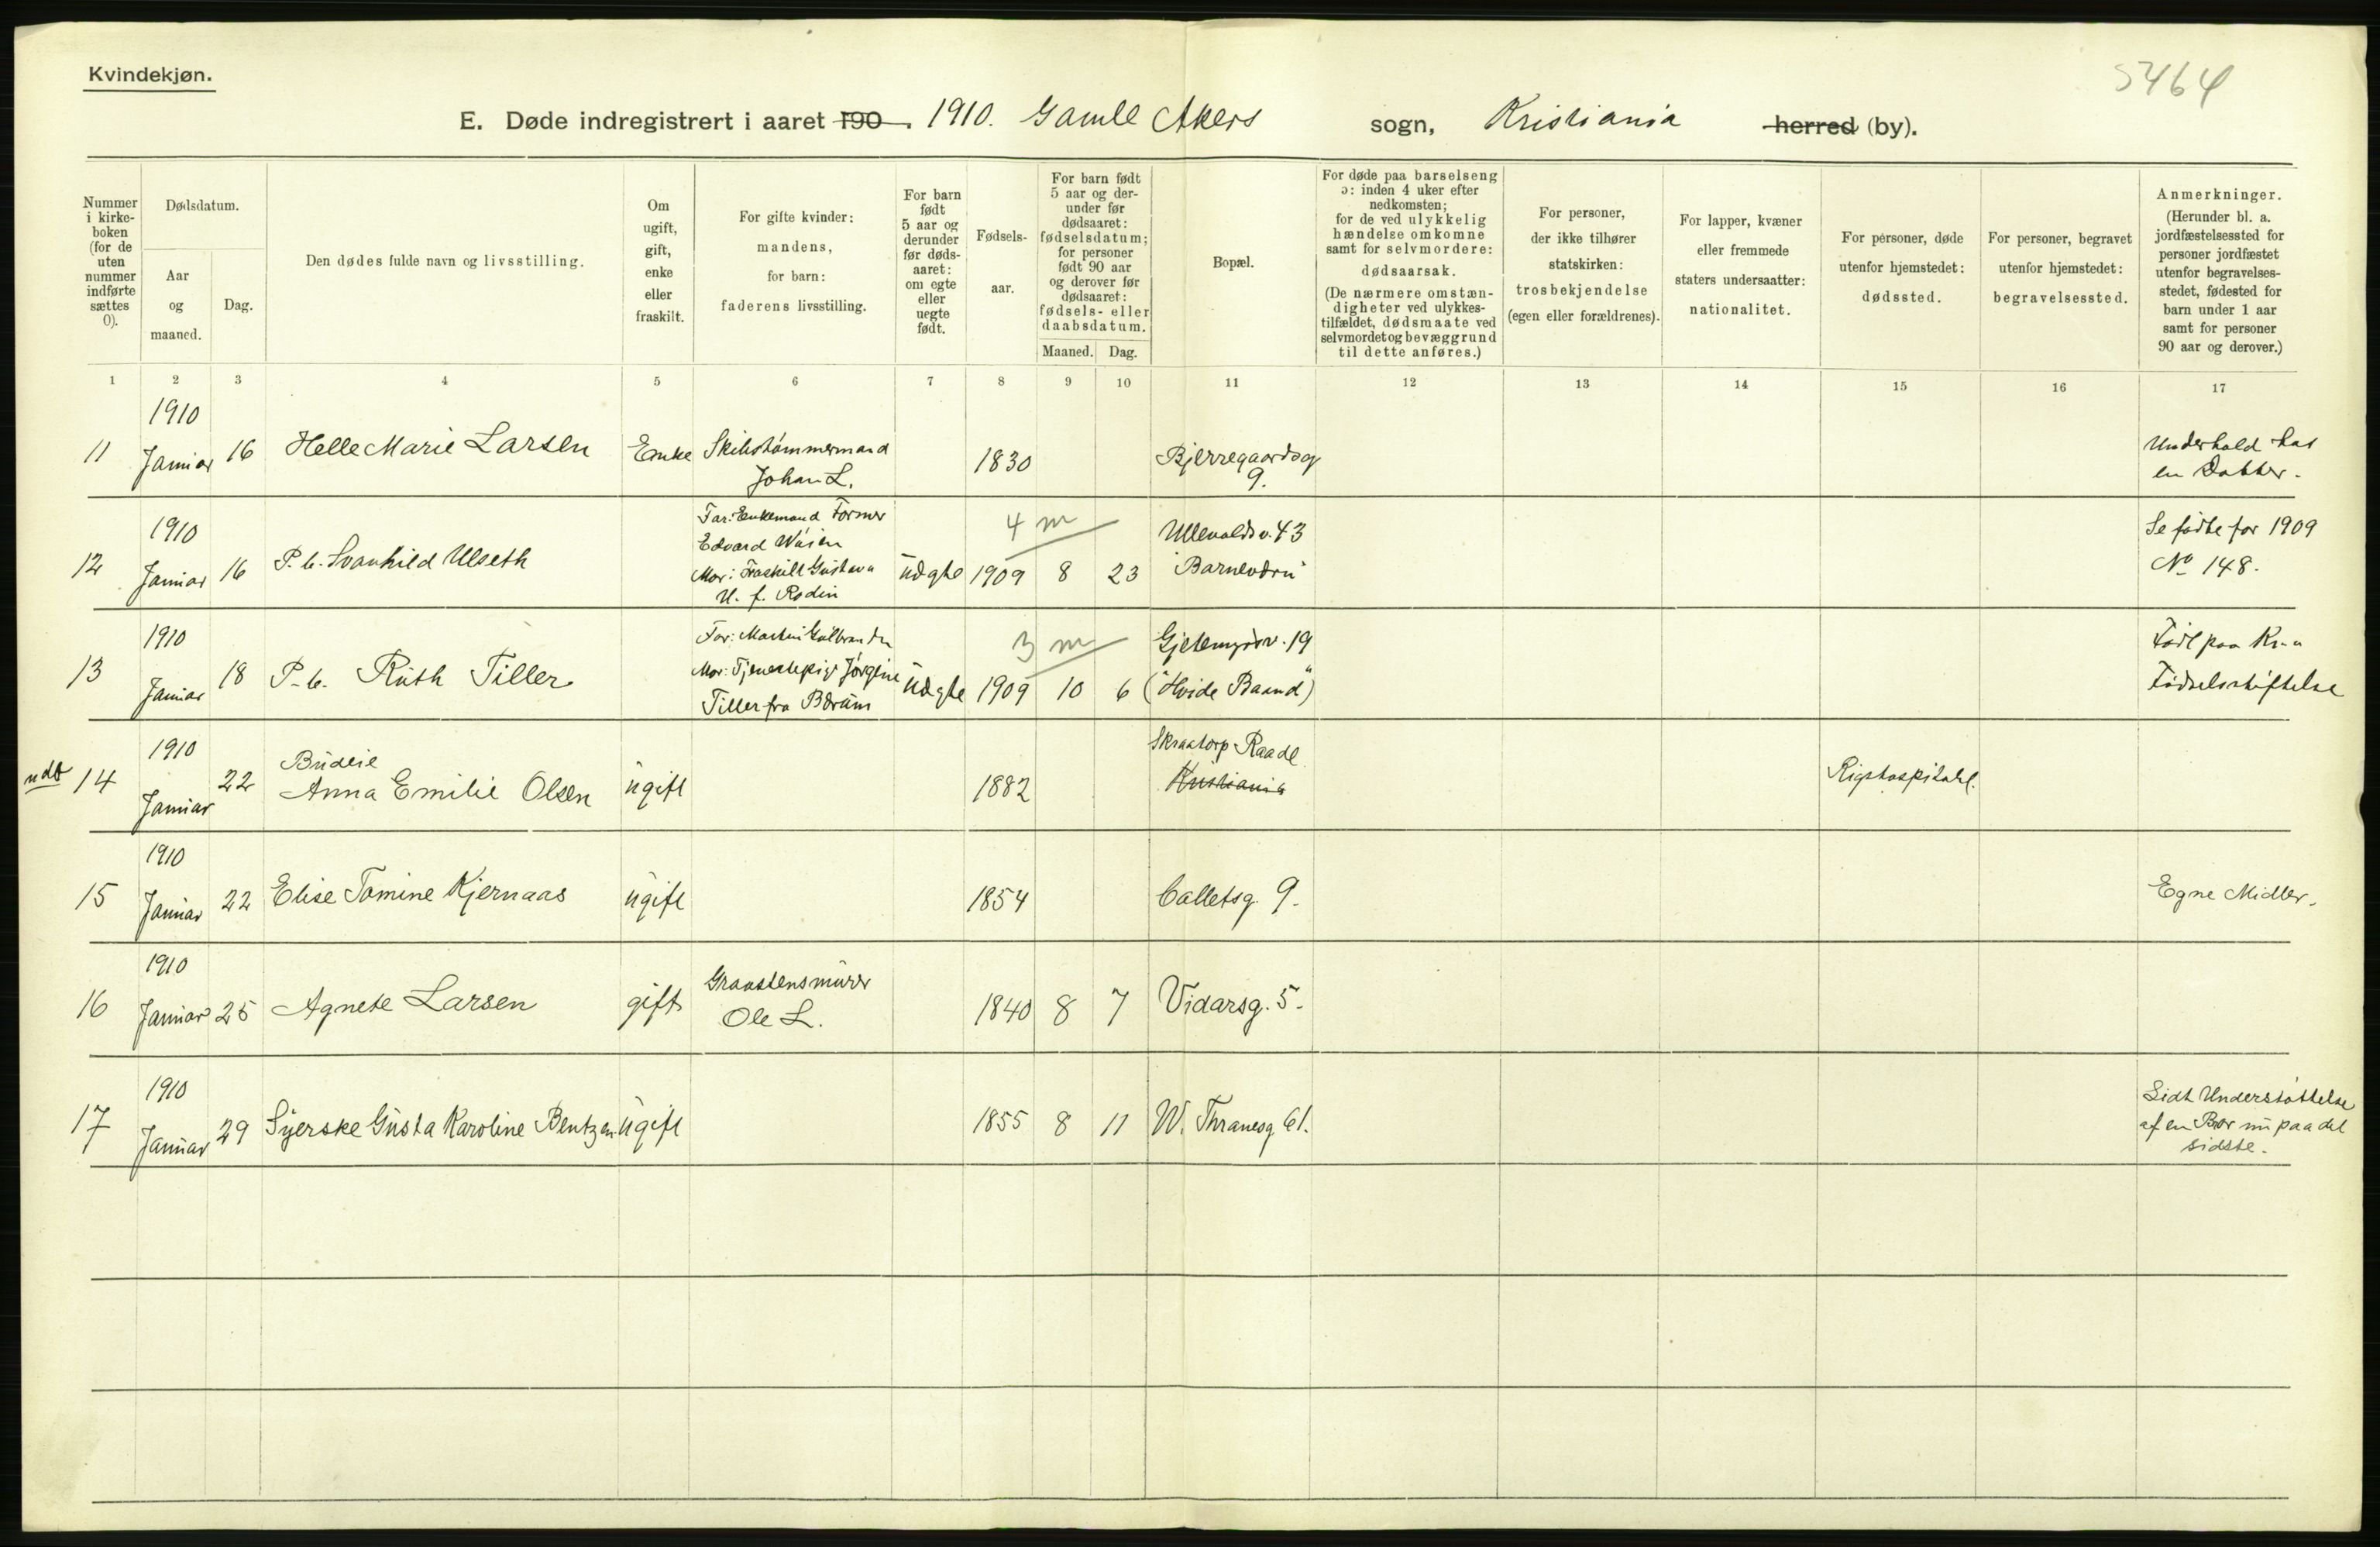 Kvindekjøn.
5464
E. Døde indregistrert i aaret 190 . 1910. Gamle Akers sogn, Kristiania herred (by).
Nummer i kirke-boken (for de uten nummer indførte sættes 0).
Dødsdatum.
Aar og maaned.
Dag.
Den dødes fulde navn og livsstilling.
Om ugift, gift, enke eller fraskilt.
For gifte kvinder: mandens, for barn: faderens livsstilling.
For barn født 5 aar og derunder før døds-aaret: om egte eller uegte født.
Fødsels-aar.
For barn født 5 aar og der-under før dødsaaret: fødselsdatum; for personer født 90 aar og derover før dødsaaret: fødsels- eller daabsdatum.
Maaned. Dag.
Bopæl.
For døde paa barselseng ɔ: inden 4 uker efter nedkomsten; for de ved ulykkelig hændelse omkomne samt for selvmordere: dødsaarsak. (De nærmere omstæn-digheter ved ulykkes-tilfældet, dødsmaate ved selvmordet og bevæggrund til dette anføres.)
For personer, der ikke tilhører statskirken: trosbekjendelse (egen eller forældrenes).
For lapper, kvæner eller fremmede staters undersaatter: nationalitet.
For personer, døde utenfor hjemstedet: dødssted.
For personer, begravet utenfor hjemstedet: begravelsessted.
Anmerkninger. (Herunder bl. a. jordfæstelsessted for personer jordfæstet utenfor begravelses-stedet, fødested for barn under 1 aar samt for personer 90 aar og derover.)
1 2 3 4 5 6 7 8 9 10 11 12 13 14 15 16 17
1910
11 Januar 16 Helle Marie Larsen Enke Skibstømmermand 1830 Bjerregaardsg Underhold hos
Johan L. 9. en Datter.
1910 Far: Enkemand Former 4 m Ullevoldsv. 43 Se fødte for 1909
Edvard
12 Januar 16 P. b. Svanhild Ulseth Mor: Fraskilt Gustava uægte 1909 8 23 No 148.
U. f. Rodin
1910 Far: Martin Gulbrandsen 3 m Gjetemyrsv. 19 Født paa Kr.a
13 Januar 18 P. b. Ruth Tiller Mor: Tjenestepige Jørgine uægte 1909 10 6 ("Hvide Baand") Fødselsstiftelse
Tiller fra Bærum
1910 Budeie Skraatorp Raade
udb 14 Januar 22 Anna Emilie Olsen ugift 1882 Kristiania Rigshospitalet.
1910
15 Januar 22 Elise Tomine Kjernaas ugift 1854 Colletsg. 9. Egne Midler.
1910 Graastensmurer
16 Januar 25 Agnete Larsen gift Ole L. 1840 8 7 Vidarsg. 5.
1910 Lidt Understøttelse
17 Januar 29 Syerske Gusta Karoline Bentzen ugift 1855 8 11 W. Thranesg. 61. af en Bror nu paa det
sidste.